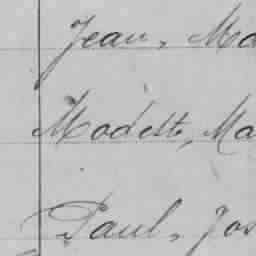 Jean, Ma
Modeste, Ma
Paul, Jos